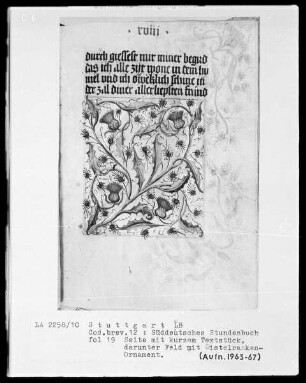 xviii
durch giessest mit miner begird
das ich alle zijt wone in dem hy
mel und ich
der zal diner allerliepsten fründ
LA 2258/10 Stuttgart LB
Cod.brev.12 : Süddeutsches Stundenbuch
fol 19 Seite mit kurzem Textstück,
darunter Feld mit Distelranken-
Ornament. (Aufn.1963-67)